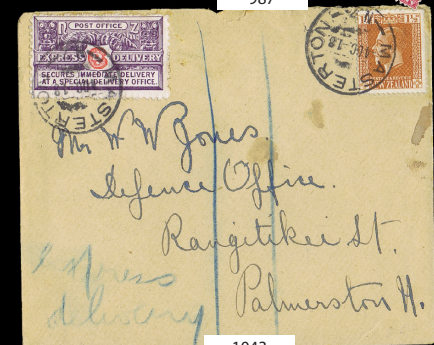 987
POST OFFICE
N Z
EXPRESS DELIVERY
SECURES IMMEDIATE DELIVERY
AT A SPECIAL DELIVERY OFFICE.
MASTERTON
MASTERTON
Mr W W Jones
Defence Office.
Rangitikei St.
Palmerston N.
Express
delivery
1043